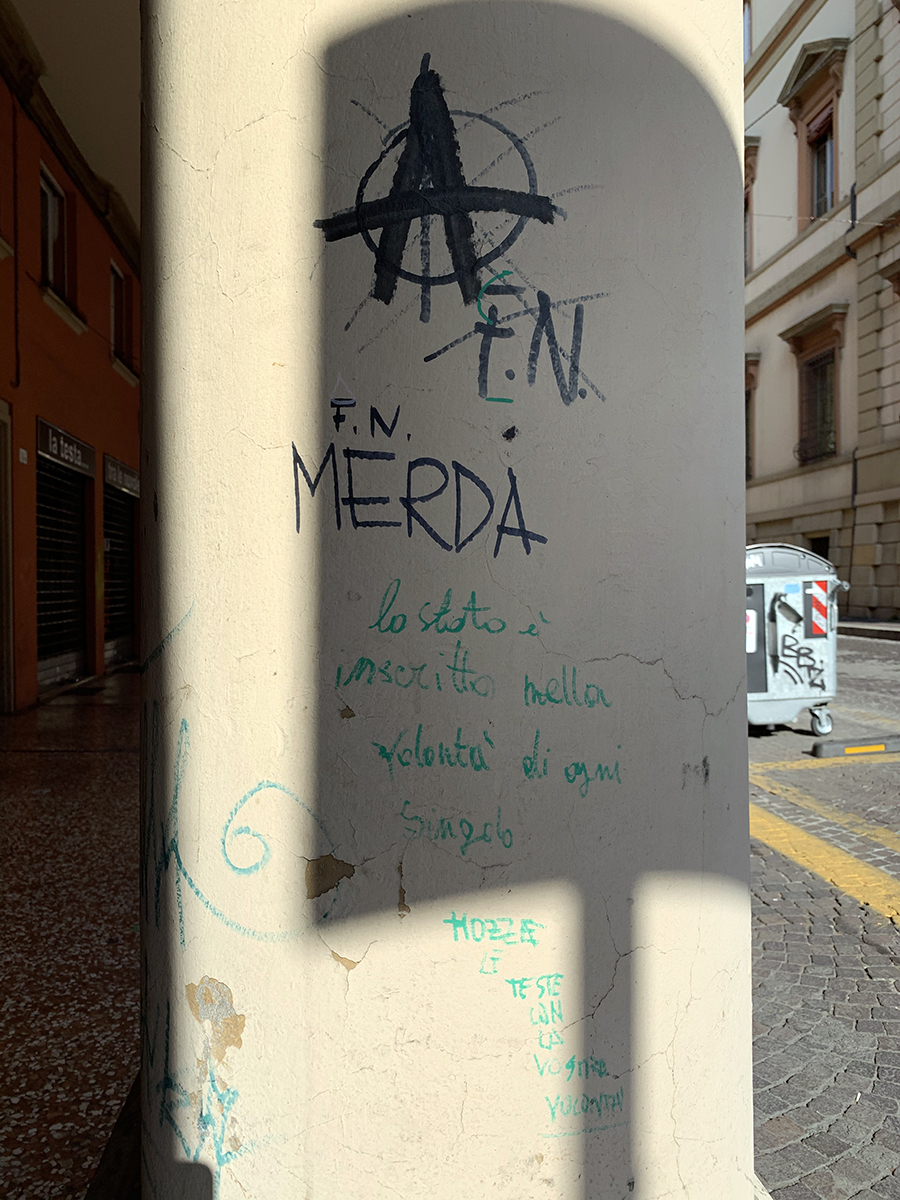 A
F.N.
F.N.
MERDA
la testa...
lo stato è
inscritto nella
volontà di ogni
singolo
MOZZE
LE
TESTE
CON
LA
VOSTRA
VOLONTA'